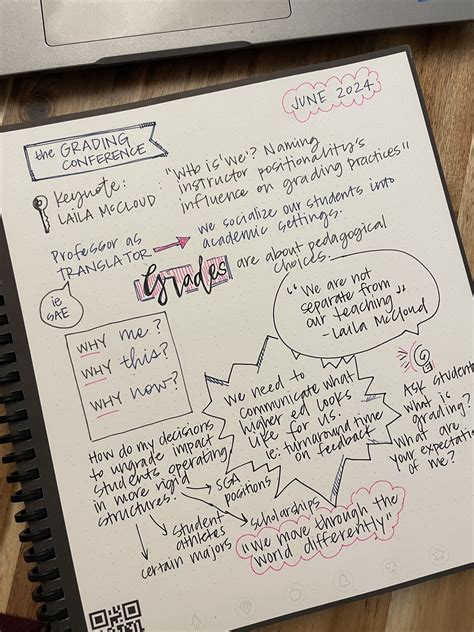 JUNE 2024
the GRADING
CONFERENCE
Keynote:
LAILA McCLOUD
"Who is 'we'? Naming
instructor positionality's
influence on grading practices"
Professor as
TRANSLATOR
we socialize our students into
academic settings.
ie
SAE
Grades are about pedagogical
choices.
"We are not
separate from
our teaching"
- Laila McCloud
WHY me?
WHY this?
WHY now?
We need to
communicate what
higher ed looks
like for us.
ie: turnaround time
on feedback
Ask students
what is
grading?
What are
your expectation
of me?
How do my decisions
to ungrade impact
students operating
in more rigid
structures?
SGA
positions
scholarships
student
athletes
certain majors
"We move through the
world differently"